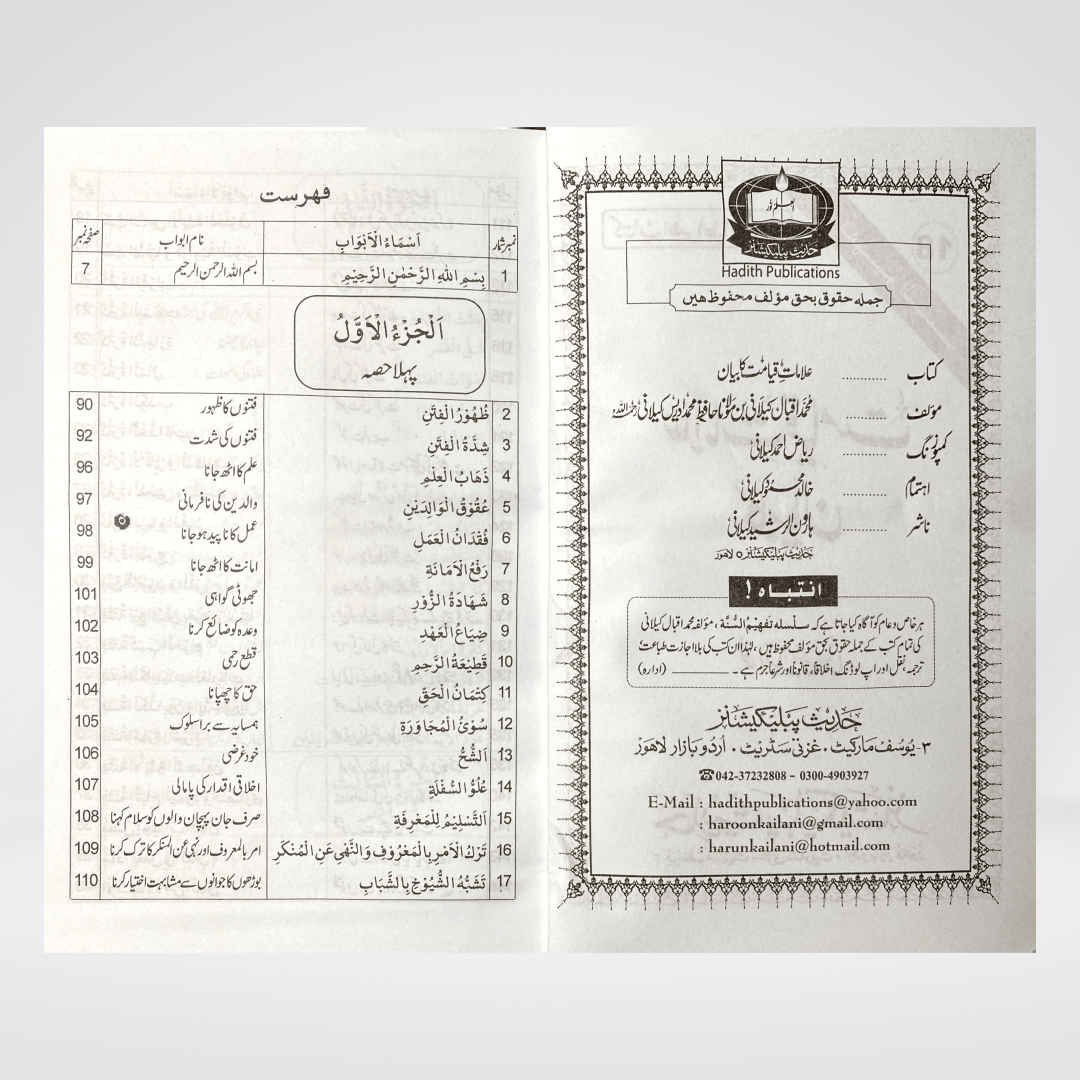 حدیث پبلیکیشنز
Hadith Publications
جملہ حقوق بحق مؤلف محفوظ ھیں
کتاب ............ علاماتِ قیامت کا بیان
مؤلف ............ محمد اقبال کیلانی بن مولانا حافظ محمد ادریس کیلانی رحمہ اللہ
کمپوزنگ ............ ریاض احمد کیلانی
اہتمام ............ خالد محمود کیلانی
ناشر ............ ہارون الرشید کیلانی
حدیث پبلیکیشنز ٥ لاہور
انتباہ !
ہر خاص و عام کو آگاہ کیا جاتا ہے کہ سلسلہ تفهيم السنة ، مؤلفہ محمد اقبال کیلانی
کی تمام کتب کے جملہ حقوق بحق مؤلف محفوظ ہیں ، لہٰذا ان کتب کی بلا اجازت طباعت ،
ترجمہ ، نقل اور اپ لوڈنگ اخلاقاً ، قانوناً اور شرعاً جرم ہے ۔ (ادارہ)
حدیث پبلیکیشنز
۳- یُوسُف مارکیٹ ، غزنی سٹریٹ ، اُردُو بازار لاھَور
☎042-37232808 - 0300-4903927
E-Mail : hadithpublications@yahoo.com
: haroonkailani@gmail.com
: harunkailani@hotmail.com
فهرست
نمبر شمار اَسْمَاءُ الْاَبْوَابِ نام ابواب صفحہ نمبر
1 بِسْمِ اللهِ الرَّحْمٰنِ الرَّحِيْمِ بسم اللہ الرحمن الرحیم 7
اَلْجُزْءُ الْاَوَّلُ
پہلا حصہ
2 ظُهُوْرُ الْفِتَنِ فتنوں کا ظہور 90
3 شِدَّةُ الْفِتَنِ فتنوں کی شدت 92
4 ذَهَابُ الْعِلْمِ علم کا اٹھ جانا 96
5 عُقُوْقُ الْوَالِدَيْنِ والدین کی نافرمانی 97
6 فُقْدَانُ الْعَمَلِ عمل کا ناپید ہوجانا 98
7 رَفْعُ الْاَمَانَةِ امانت کا اٹھ جانا 99
8 شَهَادَةُ الزُّوْرِ جھوٹی گواہی 101
9 ضِيَاعُ الْعَهْدِ وعدہ کو ضائع کرنا 102
10 قَطِيْعَةُ الرَّحِمِ قطع رحمی 103
11 كِتْمَانُ الْحَقِّ حق کا چھپانا 104
12 سُوْئُ الْمُجَاوَرَةِ ہمسایہ سے برا سلوک 105
13 اَلشُّحُّ خود غرضی 106
14 عُلُوُّ السُّفْلَةِ اخلاقی اقدار کی پامالی 107
15 اَلتَّسْلِيْمُ لِلْمَعْرِفَةِ صرف جان پہچان والوں کو سلام کہنا 108
16 تَرْكُ الْاَمْرِ بِالْمَعْرُوْفِ وَالنَّهْيِ عَنِ الْمُنْكَرِ امر بالمعروف اور نہی عن المنکر کا ترک کرنا 109
17 تَشَبُّهُ الشُّيُوْخِ بِالشَّبَابِ بوڑھوں کا جوانوں سے مشابہت اختیار کرنا 110